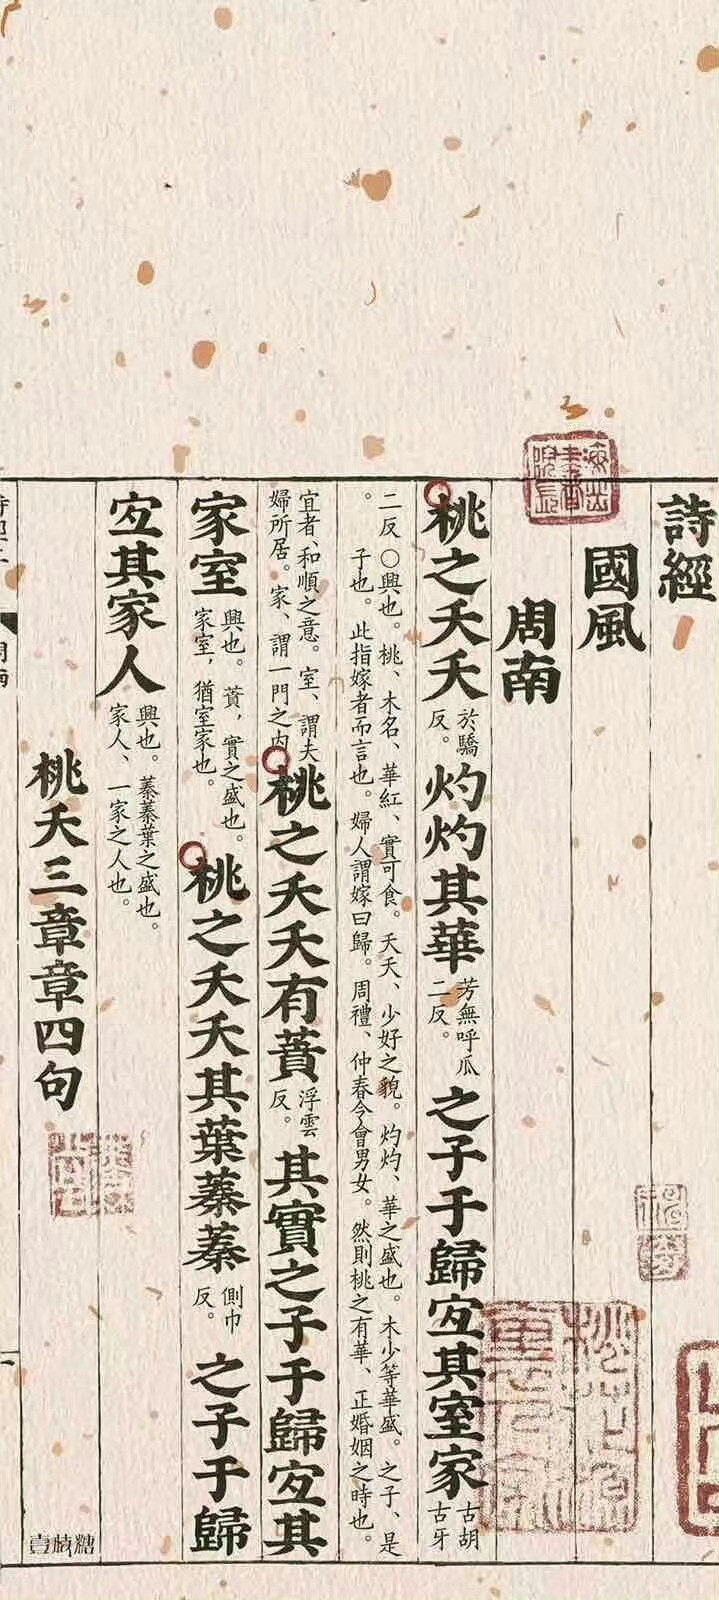 詩經
國風
周南
桃之夭夭於驕反。灼灼其華芳無呼瓜二反。之子于歸宐其室家古胡古牙
二反○興也。桃、木名、華紅、實可食。夭夭、少好之貌。灼灼、華之盛也。木少等華盛。之子、是
。子也。此指嫁者而言也。婦人謂嫁曰歸。周禮、仲春令會男女。然則桃之有華、正婚姻之時也。
宜者、和順之意。室、謂夫婦所居。家、謂一門之內桃之夭夭有蕡浮雲反。其實之子于歸宐其
家室興也。蕡，實之盛也。家室，猶室家也。桃之夭夭其葉蓁蓁側巾反。之子于歸
宐其家人興也。蓁蓁葉之盛也。家人、一家之人也。
桃夭三章章四句